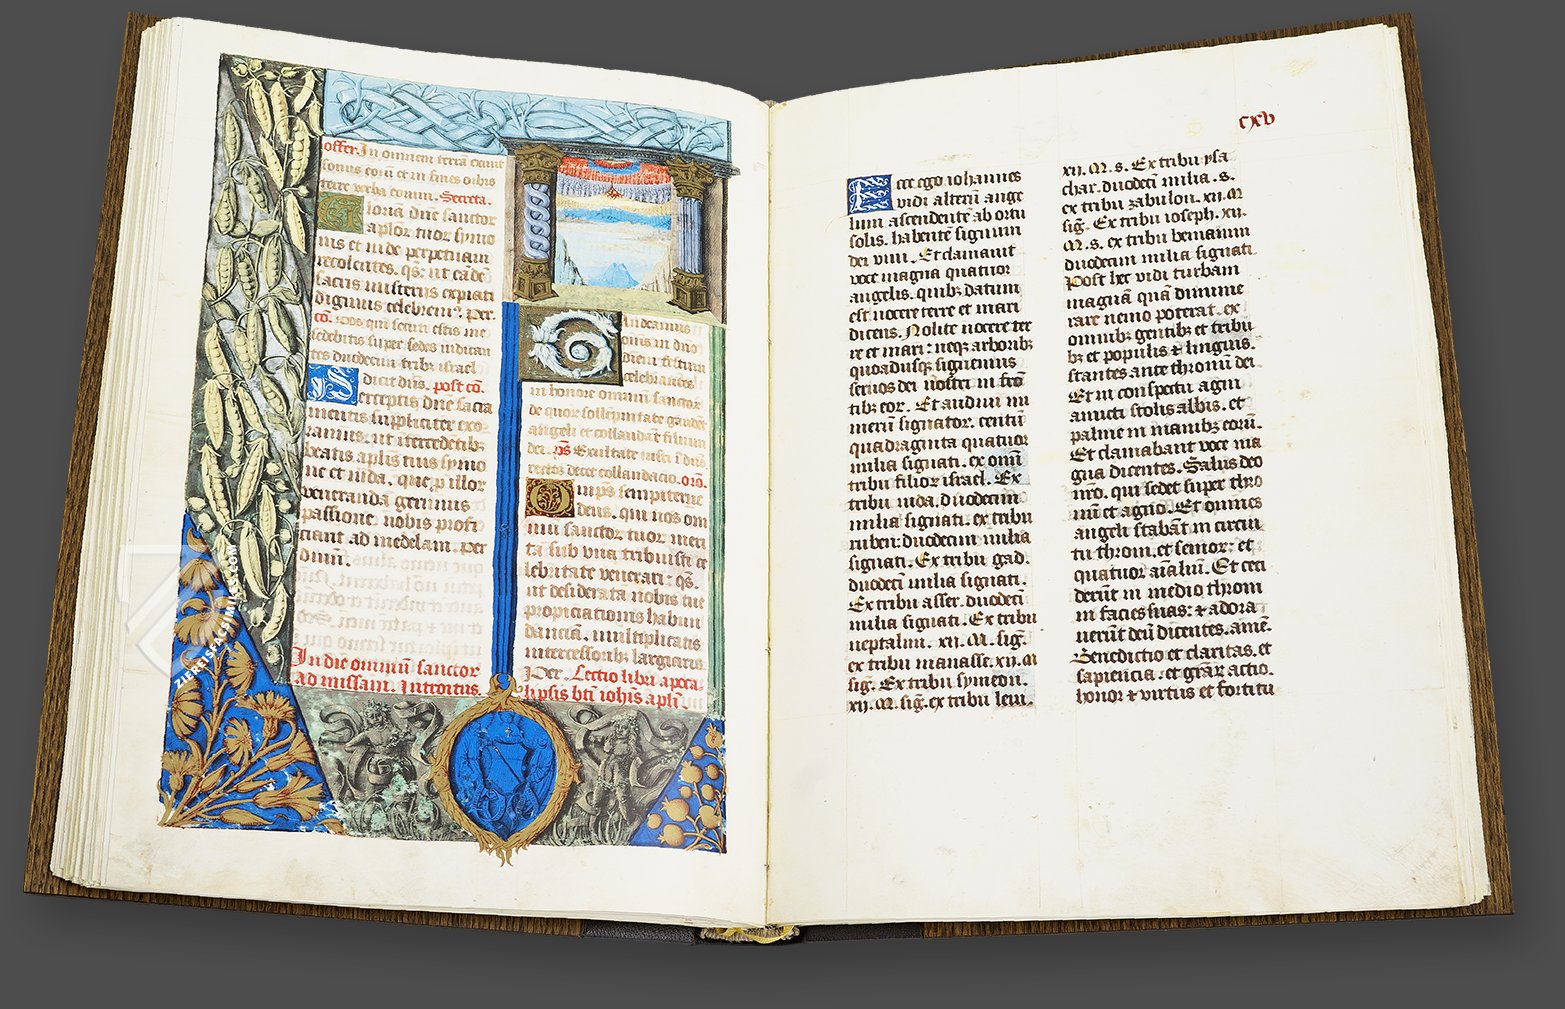 offer. In omnem terrā exiuit
sonus eorū et in fines orbis
terre verba eorum. Secreta.
Gloriā dñe sanctor
aplor tuor symo
nis et iude perpetuam
recolentes. qs. ut eādē
sacris misteriis expiati
dignius celebrem⁹. Per.
cō. Vos qui secuti estis me
sedebitis super sedes iudican
tes duodecim tribꝰ israel
dicit dñs. post cō.
Perceptis dñe sacra
mentis suppliciter exo
ramus. ut ītercedētibꝰ
beatis aplis tuis symo
ne et iuda. que p illor
veneranda gerimus
passione nobis profi
ciant ad medelam. per
dnm.
In die omniū sanctor
ad missam. Introitus.
Gaudeamus
omīs in dño
diem festum
celebrantes
in honore omniū sanctor
de quor sollempnitate gaudēt
angeli et collaudāt filium
dei. ps Exultate iusti ī dño
rectos decet collaudacio. orō.
Omps sempiterne
deus. qui nos om
niū sanctor tuor meri
ta sub vna tribuisti ce
lebritate venerari: qs.
ut desideratā nobis tue
propiciationis habun
danciā. multiplicatis
intercessoribꝰ largiaris.
Per. Lectio libri apoca
lipsis bti iohis apli
cxv
Ecce ego iohannes
vidi alterū ange
lum ascendentē ab ortu
solis. habentē signum
dei viui. Et clamauit
voce magna quatuor
angelis. quibꝫ datum
est nocere terre et mari
dicens. Nolite nocere ter
re et mari: neqꝫ arboribꝫ
quoadusqꝫ signemus
seruos dei nostri in frō
tibꝫ eor. Et audiui nu
merū signator. centū
quadraginta quatuor
milia signati. ex omī
tribu filior israel. Ex
tribu iuda. duodecim
milia signati. ex tribu
ruben: duodecim milia
signati. Ex tribu gad.
duodecī milia signati.
Ex tribu asser. duodecī
milia signati. Ex tribu
neptalim. xii. M. sig.
ex tribu manasse. xii. M
sig. Ex tribu symeon.
xii. M. sig. ex tribu leui.
xii. M. s. Ex tribu ysa
char. duodecī milia. s.
ex tribu zabulon. xii. M
sig. Ex tribu ioseph. xii.
M. s. ex tribu beniamin
duodecim milia signati.
Post hec vidi turbam
magnā quā dinume
rare nemo poterat. ex
omnibꝫ gentibꝫ et tribu
bꝫ et populis ⁊ linguis.
stantes ante thronū dei.
Et in conspectu agni
amicti stolis albis. et
palme in manibꝫ eorū.
Et clamabant voce ma
gna dicentes. Salus deo
nrō. qui sedet super thro
nū et agno. Et omnes
angeli stabāt in circui
tu throni. et senior: et
quatuor aīaliū. Et ceci
derūt in medio throni
in facies suas: ⁊ adora
uerūt deū dicentes. amē.
Benedictio et claritas. et
sapiencia. et grār actio.
honor ⁊ virtus et fortitu